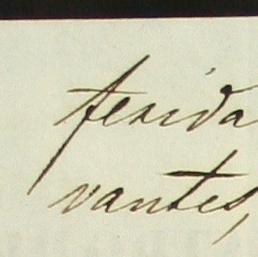 ferida
vantes,